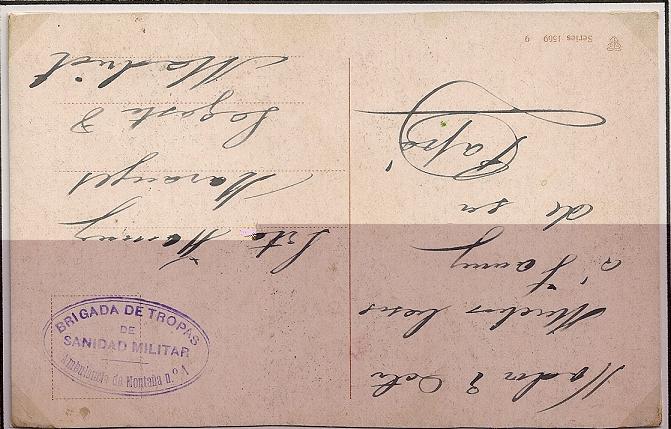 Madrid 2 Octe
Muchos besos
á Fanny
de su
Papá
Srta Fanny
Naranjo
Sagasta 8
Madrid
BRIGADA DE TROPAS
DE
SANIDAD MILITAR
Ambulancia de Montaña n.º 1
Series 1569 9